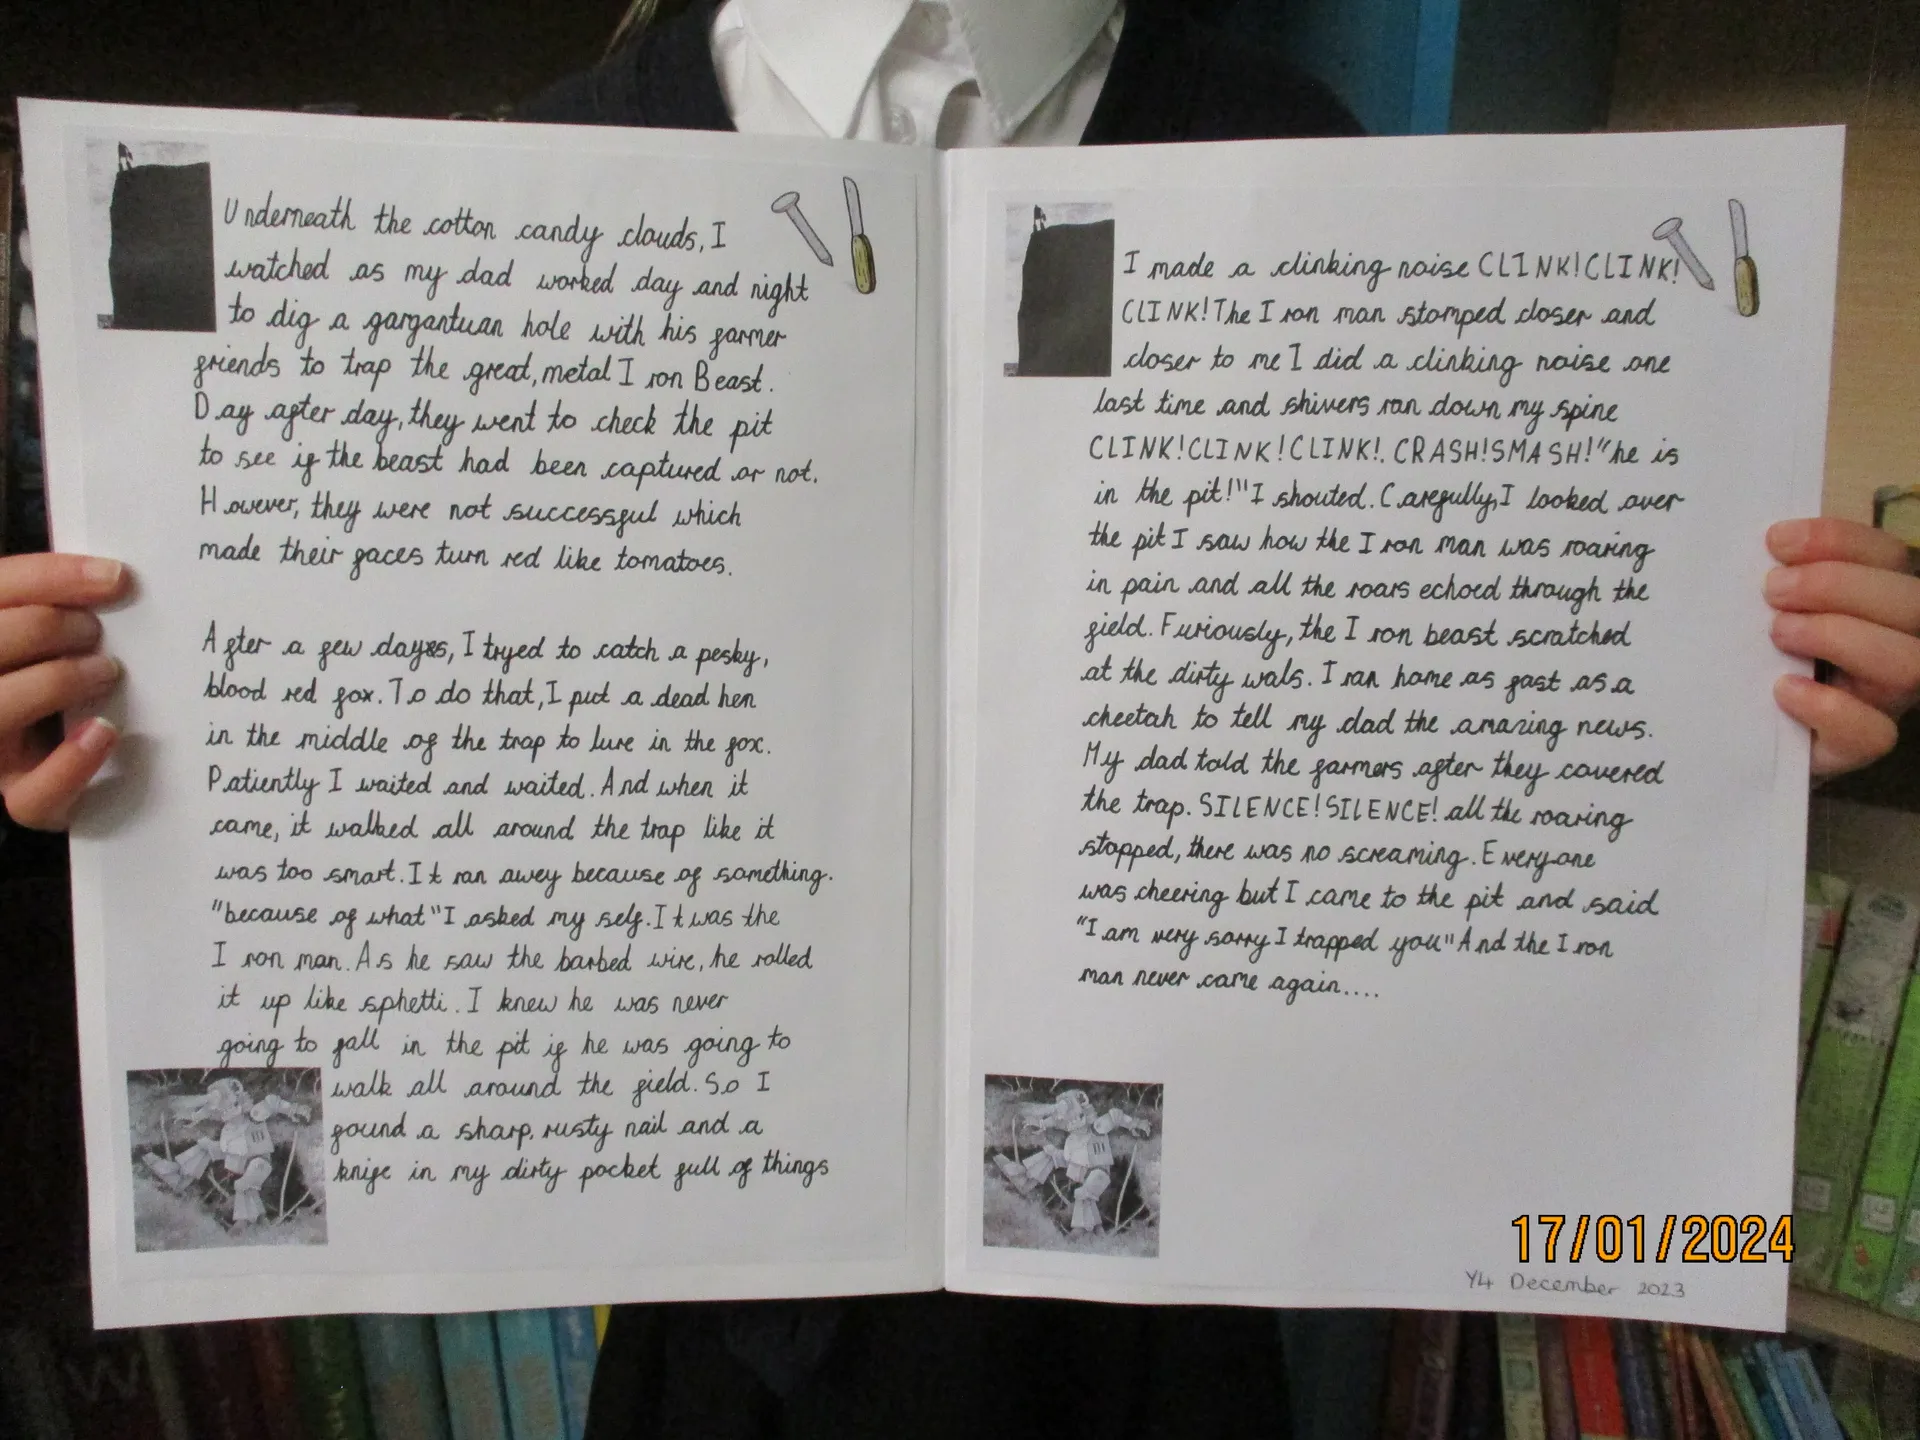 Underneath the cotton candy clouds, I
watched as my dad worked day and night
to dig a gargantuan hole with his farmer
friends to trap the great, metal Iron Beast.
Day after day, they went to check the pit
to see if the beast had been captured or not.
However, they were not successful which
made their faces turn red like tomatoes.
After a few days, I tryed to catch a pesky,
blood red fox. To do that, I put a dead hen
in the middle of the trap to lure in the fox.
Patiently I waited and waited. And when it
came, it walked all around the trap like it
was too smart. It ran awey because of something.
"because of what" I asked my self. It was the
Iron man. As he saw the barbed wire, he rolled
it up like sphetti. I knew he was never
going to fall in the pit if he was going to
walk all around the field. So I
found a sharp, rusty nail and a
knife in my dirty pocket full of things
I made a clinking noise CLINK! CLINK!
CLINK! The Iron man stomped closer and
closer to me I did a clinking noise one
last time and shivers ran down my spine
CLINK! CLINK! CLINK!. CRASH! SMASH! "he is
in the pit!" I shouted. Carefully, I looked over
the pit I saw how the Iron man was roaring
in pain and all the roars echoed through the
field. Furiously, the Iron beast scratched
at the dirty wals. I ran home as fast as a
cheetah to tell my dad the amazing news.
My dad told the farmers after they covered
the trap. SILENCE! SILENCE! all the roaring
stopped, there was no screaming. Everyone
was cheering but I came to the pit and said
"I am very sorry I trapped you" And the Iron
man never came again....
17/01/2024
Y4 December 2023